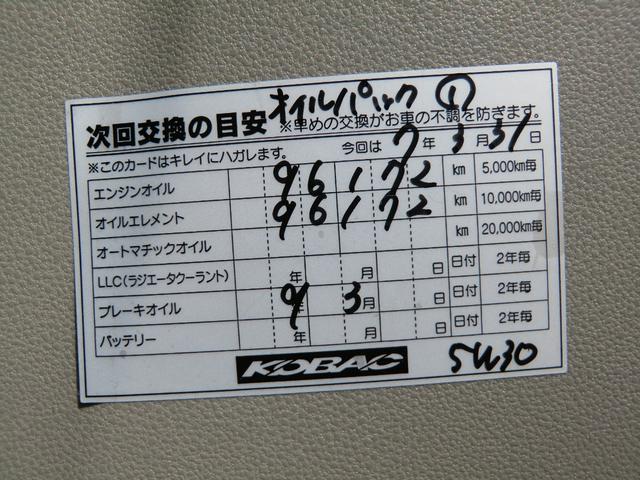 オイルパック ①
次回交換の目安 ※早めの交換がお車の不調を防ぎます。
※このカードはキレイにハガレます。 今回は 7 年 3 月 31 日
エンジンオイル 96172 km 5,000km毎
オイルエレメント 96172 km 10,000km毎
オートマチックオイル km 20,000km毎
LLC(ラジエータクーラント) 年 月 日 日付 2年毎
ブレーキオイル 9年 3月 日 日付 2年毎
バッテリー 年 月 日 日付 2年毎
KOBAC 5W30